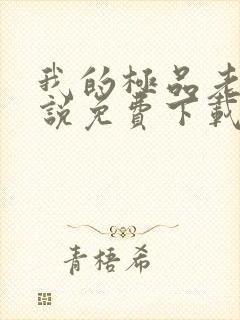 我的極品老
說免費下載
青梧希